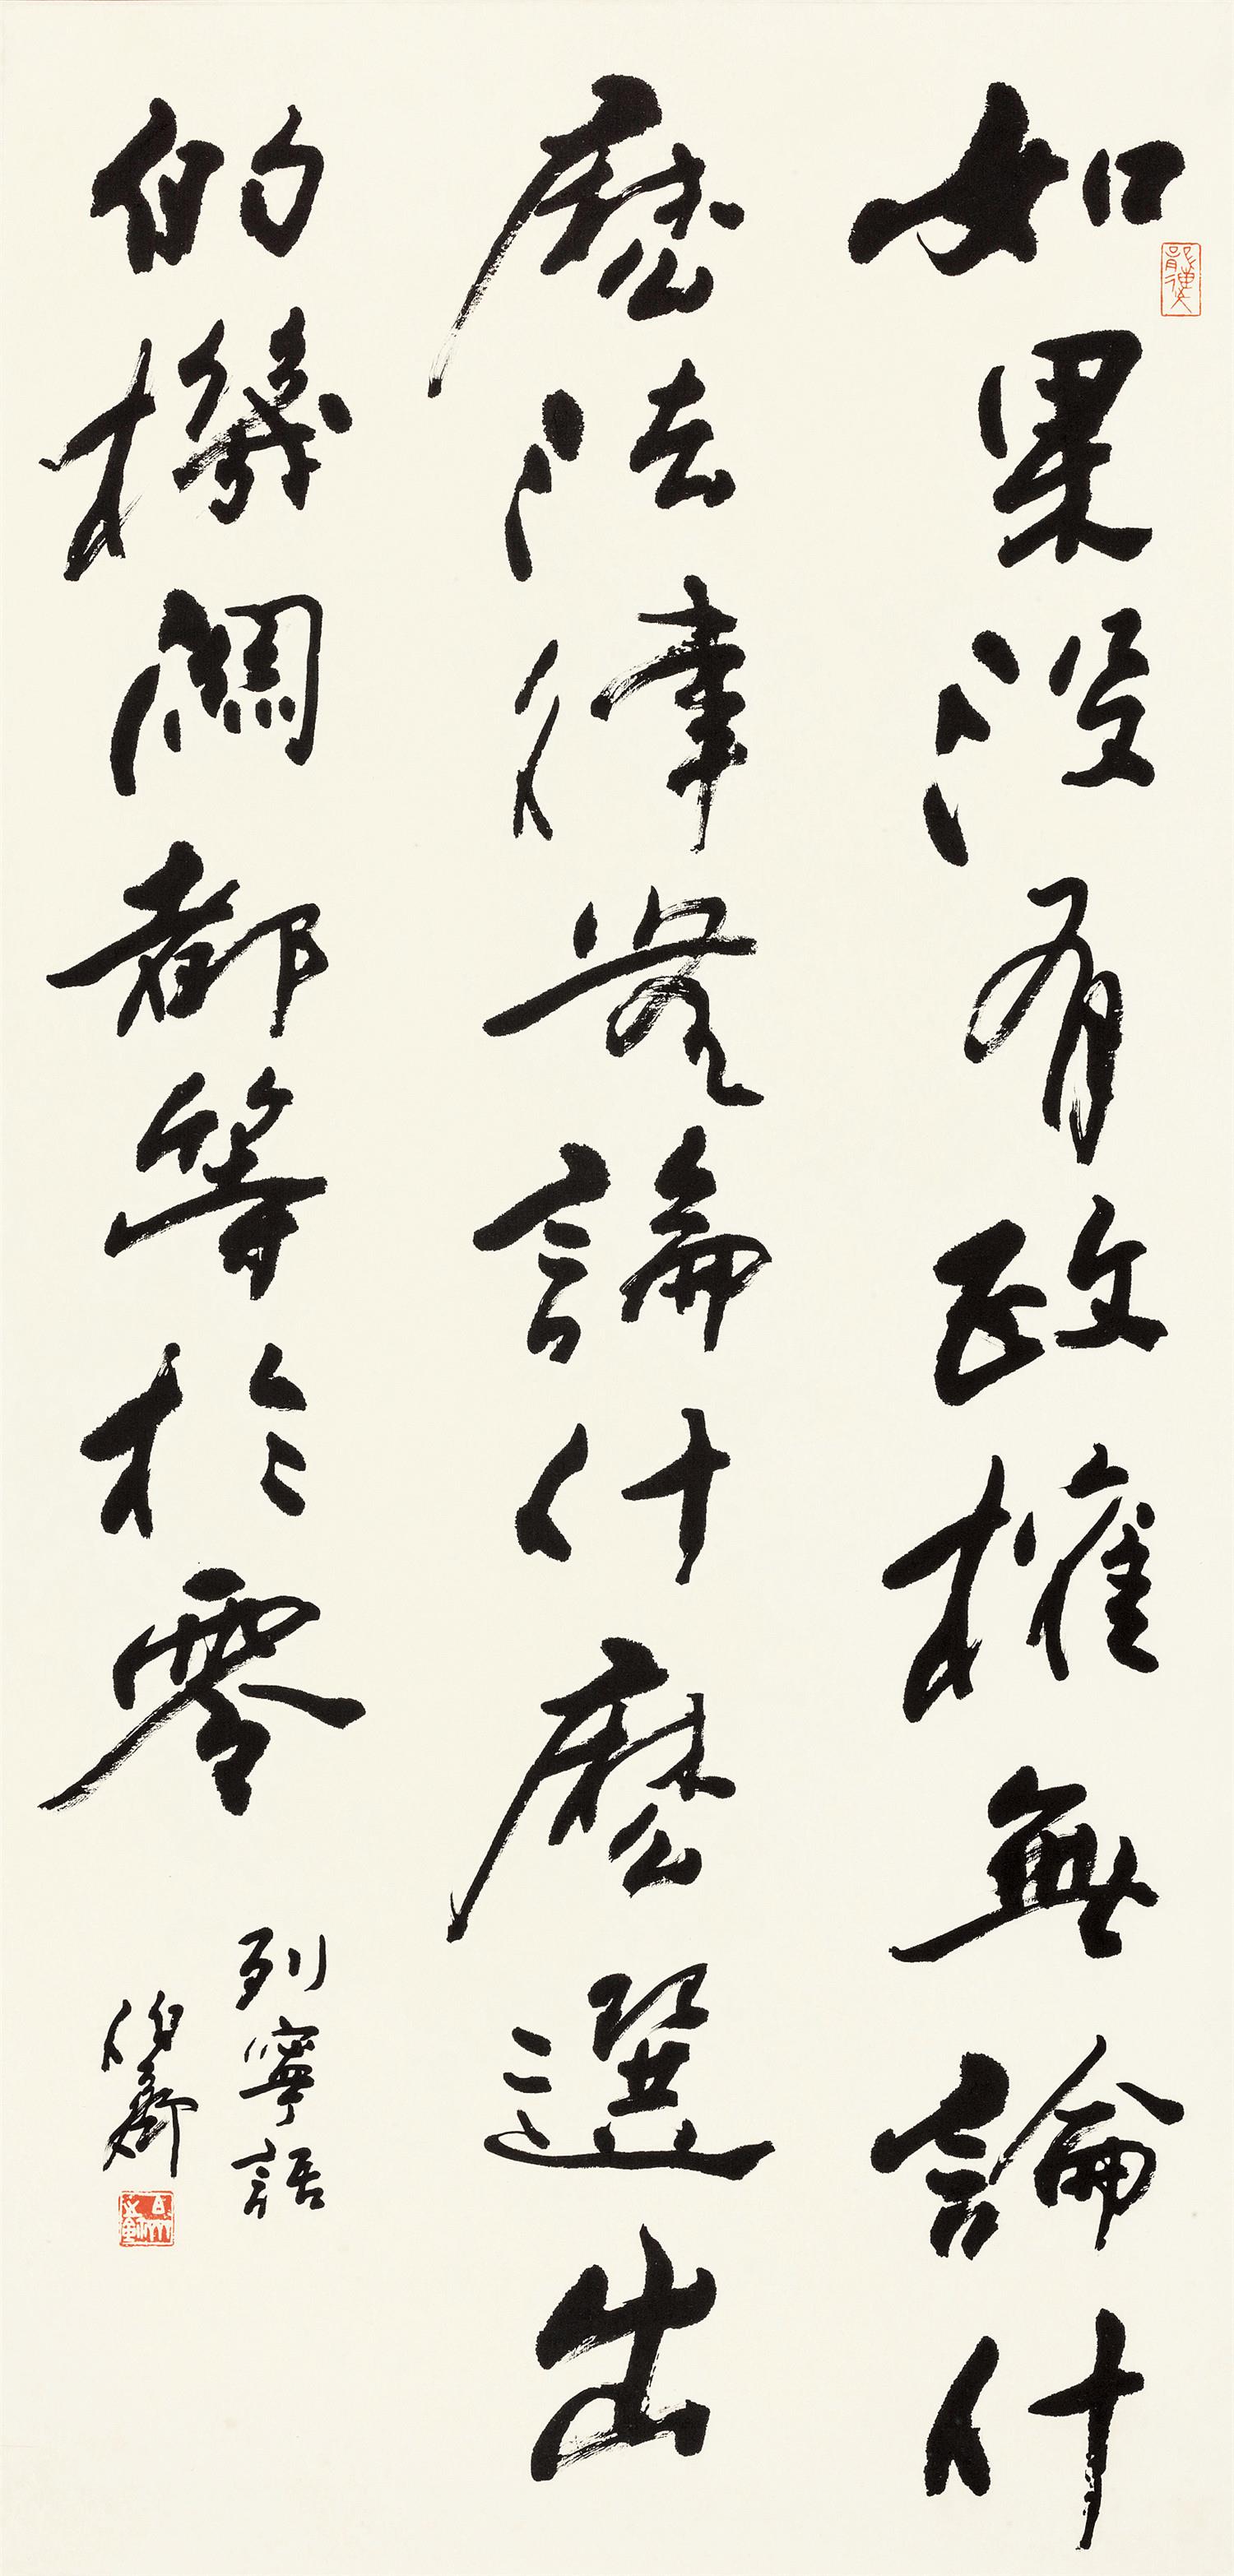 如果没有政權無論什
麽法律無論什麽選出
的機關都等於零
列寧語